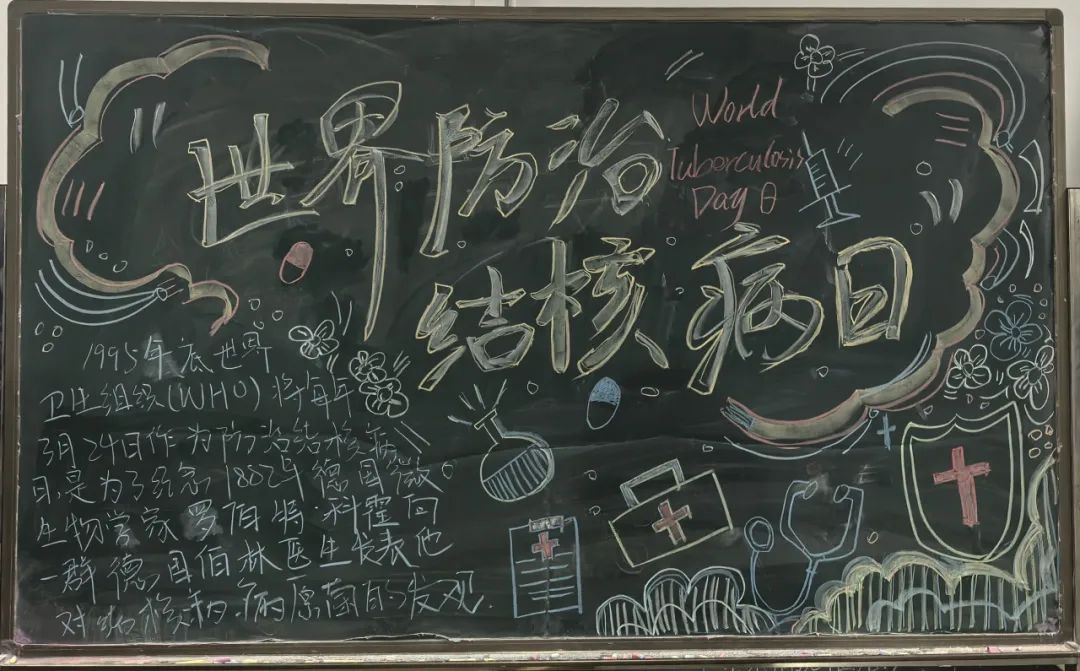 世界防治
World
Tuberculosis
Day
结核病日
1995年底世界
卫生组织(WHO)将每年
3月24日作为防治结核病
日,是为了纪念1882年德国微
生物学家罗伯特·科霍向
一群德国伯林医生发表他
对结核病病原菌的发现.